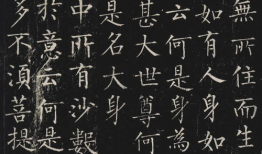 無所住而生
如有人身如
云何是身為
甚大世尊何
是名大身
中所有沙數
於意云何是
多不須菩提